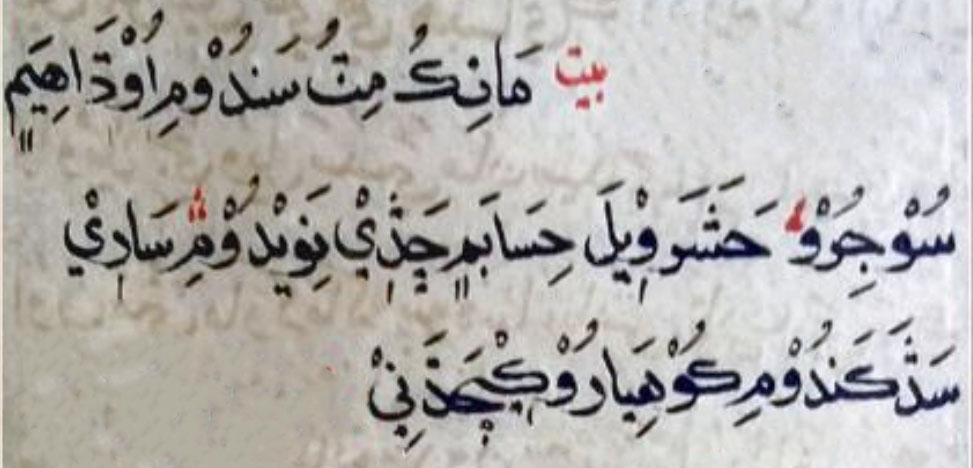 بيت مَانِڪُ مِتُ سَندُوْمِ اُوْدَاهِيَمٍ
سُوْجِرُوْ حَشَر وِيْلَ حِسَابَمٍ جَڎِيْ نِوِيْدُوْمِ سَارِيْ
سَڎَ ڪَندُوْمِ ڪُوْهِيَارُوْ